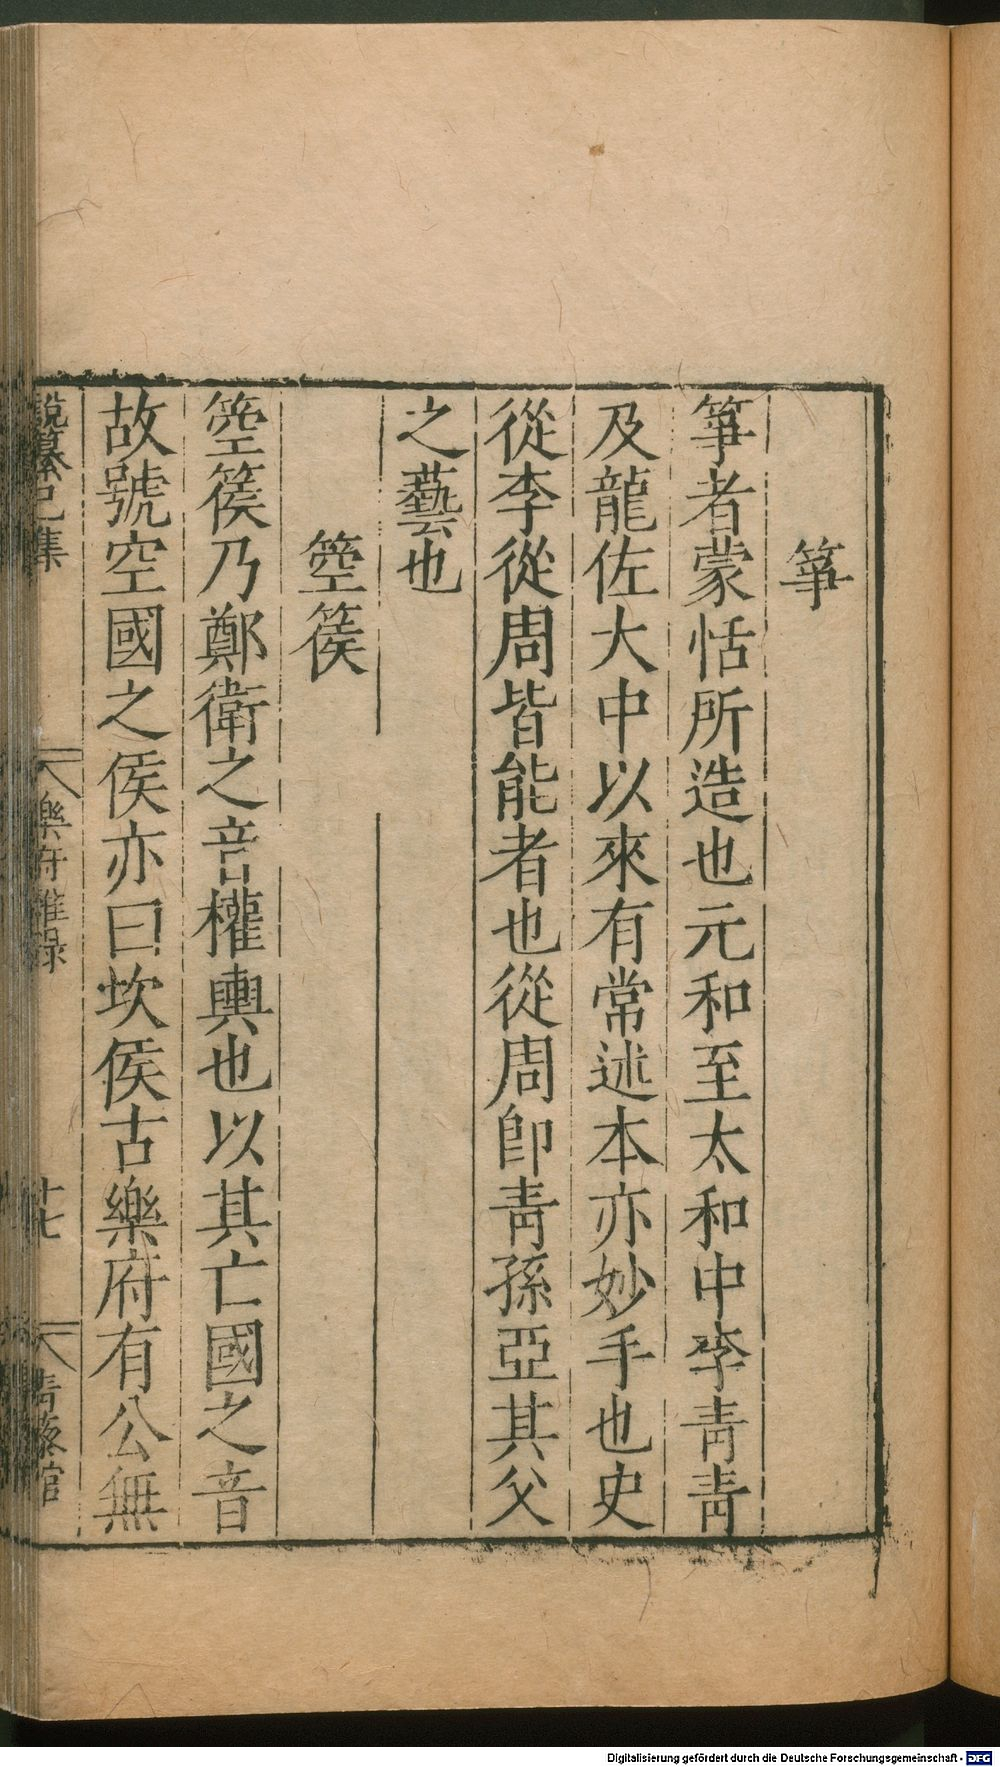 箏
箏者蒙恬所造也元和至太和中李青青
及龍佐大中以來有常述本亦妙手也史
從李從周皆能者也從周即青孫亞其父
之藝也
箜篌
箜篌乃鄭衛之音權輿也以其亡國之音
故號空國之侯亦曰坎侯古樂府有公無
說纂己集
樂府雜録
十七
青藜館
Digitalisierung gefördert durch die Deutsche Forschungsgemeinschaft - DFG